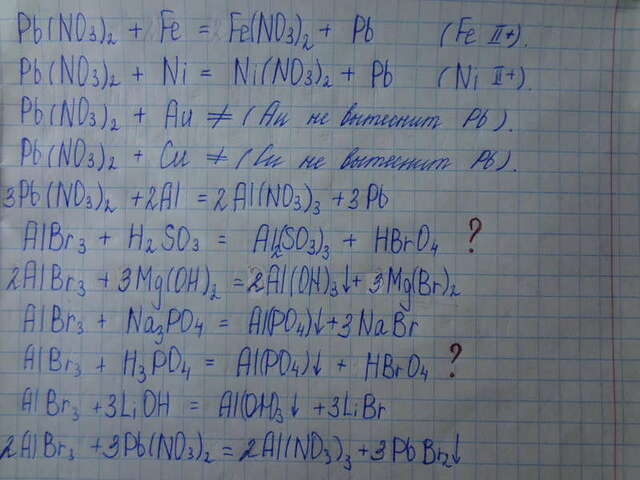 Pb(NO3)2 + Fe = Fe(NO3)2 + Pb (Fe II+).
Pb(NO3)2 + Ni = Ni(NO3)2 + Pb (Ni II+).
Pb(NO3)2 + Au ≠ (Au не вытеснит Pb).
Pb(NO3)2 + Cu ≠ (Cu не вытеснит Pb).
3Pb(NO3)2 + 2Al = 2Al(NO3)3 + 3Pb
AlBr3 + H2SO3 = Al2(SO3)3 + HBrO4 ?
2AlBr3 + 3Mg(OH)2 = 2Al(OH)3↓ + 3Mg(Br)2
AlBr3 + Na3PO4 = Al(PO4)↓ + 3NaBr
AlBr3 + H3PO4 = Al(PO4)↓ + HBrO4 ?
AlBr3 + 3LiOH = Al(OH)3↓ + 3LiBr
2AlBr3 + 3Pb(NO3)2 = 2Al(NO3)3 + 3PbBr2↓